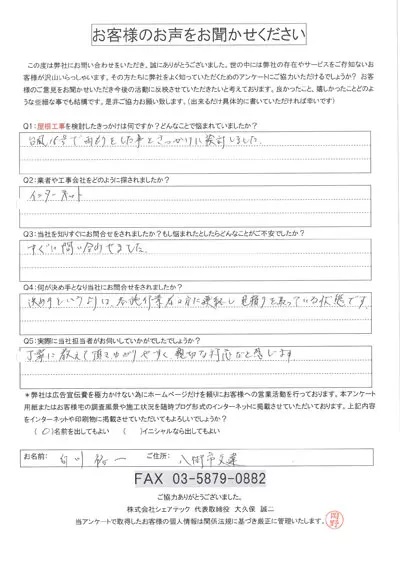 お客様のお声をお聞かせください
この度は弊社にお問い合わせをいただき、誠にありがとうございました。世の中には弊社の存在やサービスをご存知ないお
客様が沢山いらっしゃいます。その方たちに弊社をよく知っていただくためのアンケートにご協力いただけるでしょうか？ お客
様のご意見をお聞かせいただき今後の活動に反映させていただきたいと考えております。良かったこと、嬉しかったことどのよ
うな些細な事でも結構です。是非ご協力お願い致します。（出来るだけ具体的に書いていただければ幸いです）
Q1：屋根工事を検討したきっかけは何ですか？どんなことで悩まれていましたか？
台風15号で雨もりをした事をきっかけに検討しました。
Q2：業者や工事会社をどのように探されましたか？
インターネット
Q3：当社を知りすぐにお問合せをされましたか？もし悩まれたとしたらどんなことがご不安でしたか？
すぐに問い合わせました。
Q4：何が決め手となり当社にお問合せをされましたか？
決め手というよりは、 見積りを取っている状態です。
Q5：実際に当社担当者がお伺いしていかがでしたでしょうか？
丁寧に教えて頂きわかりやすく、親切な対応だと感じます
＊弊社は広告宣伝費を極力かけない為にホームページだけを頼りにお客様への営業活動を行っております。本アンケート
用紙またはお客様宅の調査風景や施工状況を随時ブログ形式のインターネットに掲載させていただいております。上記内容
をインターネットや印刷物に掲載させていただいてもよろしいでしょうか？
（〇）名前を出してもよい （ ）イニシャルなら出してもよい
お名前： ご住所： 八街市文違
FAX 03-5879-0882
ご協力ありがとうございました。
株式会社シェアテック 代表取締役 大久保 誠二
当アンケートで取得したお客様の個人情報は関係法規に基づき厳正に管理いたします。